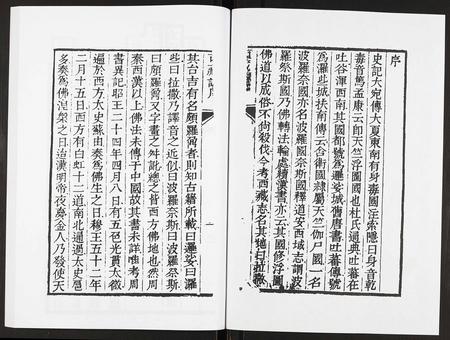 序
史記大宛傳大夏東南有身毒國注索隱曰身音乾
毒音篤孟康云即天竺浮圖國也杜氏通典吐蕃在
吐谷渾西南其國都號為邏娑城舊唐書吐蕃傳號
為邏些城扶南傳云舍衛國隸屬天竺伽尸國一名
波羅奈國亦名波羅奈斯國釋道安西域志謂波
羅奈斯國乃佛轉法輪處續漢書亦云其國修浮圖
佛道以成俗不尚殺伐今考西藏志名其地曰拉撒
其台吉有名頗羅鼐者則知古籍所載曰邏娑曰邏
些曰拉撒乃譯音之近似曰波羅奈斯曰波羅奈斯
曰頗羅鼐又字畫之舛訛總之皆西方佛地也然周
秦西漢以上佛法未傳于中國故其書未詳唯考周
書異記昭王二十四年四月八日有五色光貫太微
遍於西方太史蘇由奏為佛生之日穆王五十二年
二月十五日西方有白虹十二道南北通過太史扈
多奏為佛涅槃之日迨漢明帝夜夢金人乃發使天